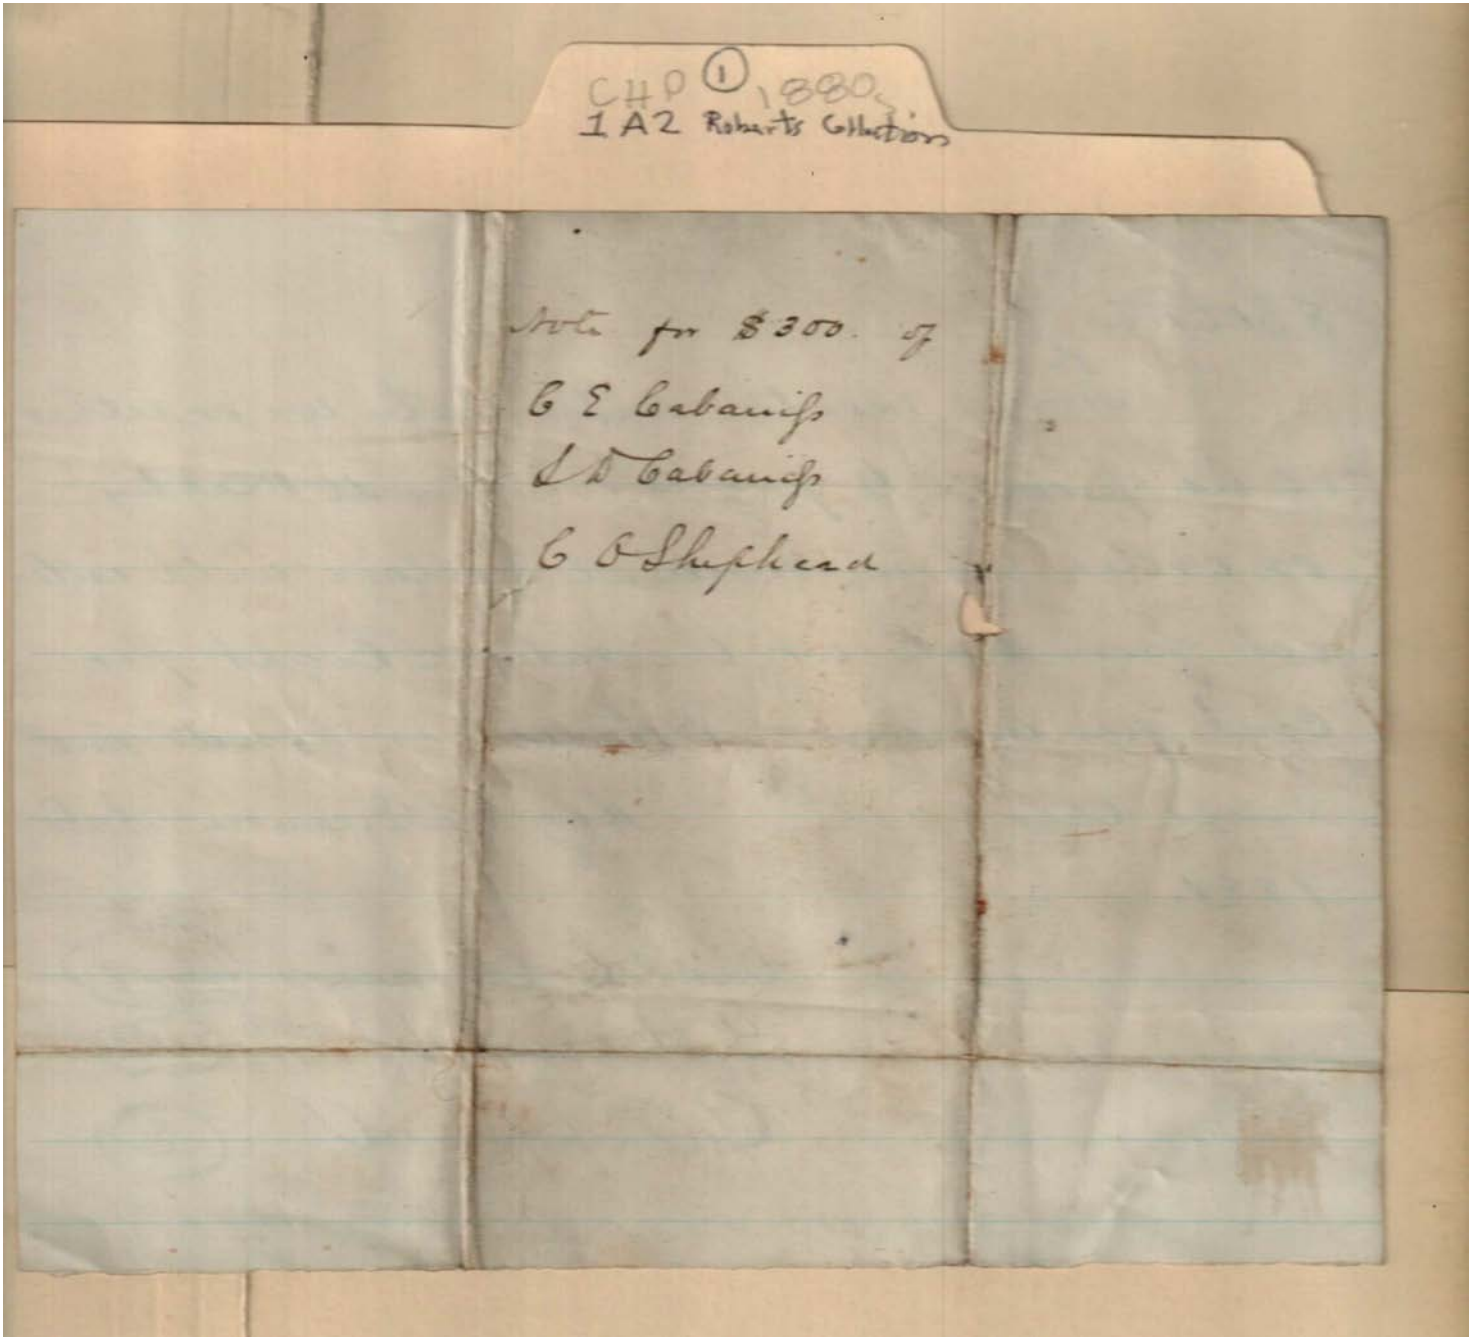 CHP ① 1880s
1A2 Roberts Collection
Note for $300. of
C E Cabaniss
S D Cabaniss
C O Shepheard